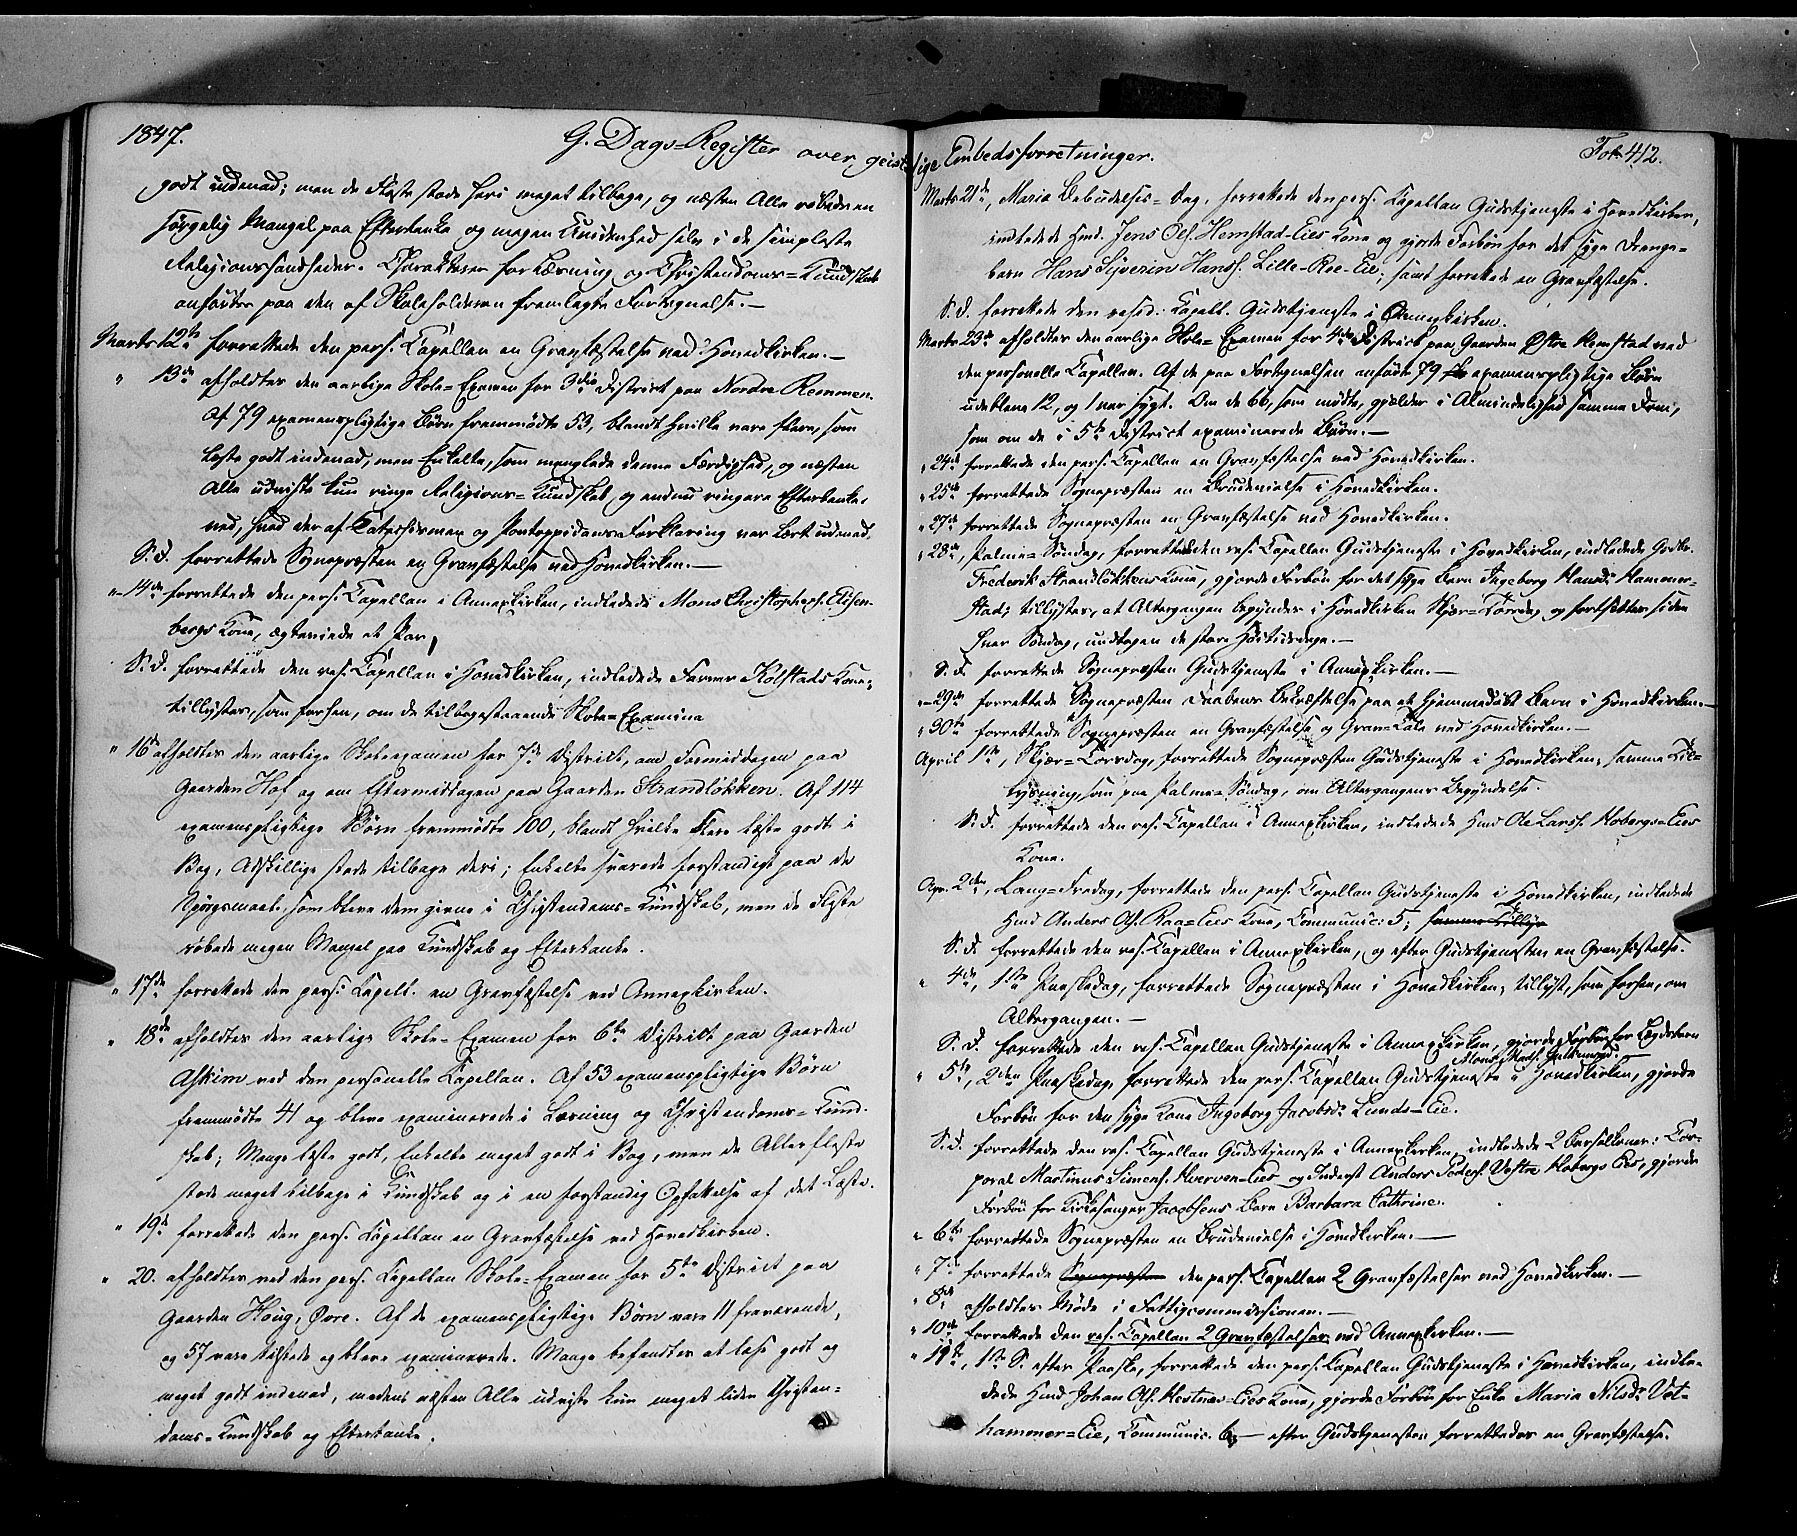 1847.
G. Dags-Register over geistlige Embedsforretninger.
Fol. 412.
godt indenad; men de Fleste stode heri meget tilbage, og næsten Alle røbede en
sørgelig Mangel paa Eftertanke og megen Uvidenhed selv i de simpleste
Religionssandheder. Charakterer for Læsning og Christendoms-Kundskab
anførtes paa den af Skoleholderen fremlagte Fortegnelse.—
Marts 12te forrettede den pers. Capellan en Gravfæstelse ved Hovedkirken.—
" 13de afholdtes den aarlige Skole-Examen for 3die District paa Nordre Remmen.
Af 79 examenspligtige Børn fremmødte 53, blandt hvilke vare flere, som
læste godt indenad, men Enkelte, som manglede denne Færdighed, og næsten
Alle udviste kun ringe Religions-Kundskab, og endnu ringere Eftertanke
ved, hvad der af Catechismen og Pontoppidans Forklaring var lært udenad.
S. d. forrettede Sognepræsten en Gravfæstelse ved Hovedkirken.—
" 14de forrettede den pers. Capellan i Annexkirken, indledede Mons Christophers. Elisen-
bergs Kone, ægteviede et Par,
S. d. forrettede den res. Capellan i Hovedkirken, indledede Farver Kolstads Kone;
tillystes, som forhen, om de tilbagestaaende Skole-Examina
" 16de afholdtes den aarlige Skoleexamen for 7de District, om Formiddagen paa
Gaarden Hof og om Eftermiddagen paa Gaarden Strandløkken. Af 114
examenspligtige Børn fremmødte 100, blandt hvilke Flere læste godt i
Bog, Adskillige stode tilbage deri; Enkelte svarede forstandigt paa de
Spørgsmaal, som bleve dem givne i Christendoms-Kundskab, men de Fleste
røbede megen Mangel paa Kundskab og Eftertanke.
" 17de forrettede den pers. Capell. en Gravfæstelse ved Annexkirken.
" 18de afholdtes den aarlige Skole-Examen for 6te District paa Gaarden
Askim ved den personelle Capellan. Af 53 examenspligtige Børn
fremmødte 41 og bleve examinerede i Læsning og Christendoms-Kund-
skab; Mange læste godt, Enkelte meget godt i Bog, men de Allerfleste
stode meget tilbage i Kundskab og i en forstandig Opfattelse af det Læste.
" 19de forrettede den pers. Capellan en Gravfæstelse ved Hovedkirken.
" 20. afholdtes ved den pers. Capellan Skole-Examen for 5te District paa
Gaarden Houg, Øvre. Af de examenspligtige Børn vare 11 fraværende,
og 57 vare tilstede og bleve examinerede. Mange befandtes at læse godt og
meget godt indenad, medens næsten Alle udviste kun meget liden Christen-
doms-Kundskab og Eftertanke.
Marts 21de, Mariæ Bebudelses-Dag, forrettede den pers. Capellan Gudstjeneste i Hovedkirken,
indledede Hmd. Jens Ols. Hemstad-Eies Kone og gjorde Forbøn for det syge Drenge-
barn Hans Syverin Hanss. Lille-Roe-Eie; samt forrettede en Gravfæstelse.
S. d. forrettede den resid. Capell. Gudstjeneste i Annexkirken.
Marts 23de afholdtes den aarlige Skole-Examen for 4de District paa Gaarden Østre Hemstad ved
den personelle Capellan. Af de paa Fortegnelsen anførte 79 examenspligtige Børn
udebleve 12, og 1 var sygt. Om de 66, som mødte, gjælder i Almindelighed samme Dom,
som om de i 5te District examinerede Børn.—
" 24de forrettede den pers. Capellan en Gravfæstelse ved Hovedkirken.
" 25de forrettede Sognepræsten en Brudevielse i Hovedkirken.
" 27de forrettede Sognepræsten en Gravfæstelse ved Hovedkirken.
" 28de, Palme-Søndag, forrettede den res. Capellan Gudstjeneste i Hovedkirken, indledede Gaardbr.
Frederik Strandløkkens Kone, gjorde Forbøn for det syge Barn Ingeborg Hansd. Hammer-
stad; tillystes, at Altergangen begynder i Hovedkirken Skjær-Torsdag og fortsættes siden
hver Søndag, undtagen de store Høitidsdage.—
S. d. forrettede Sognepræsten Gudstjeneste i Annexkirken.—
" 29de forrettede Sognepræsten Daabens Bekræftelse paa et hjemmedøbt Barn i Hovedkirken.—
" 30te forrettede Sognepræsten en Gravfæstelse og Grav-Tale ved Hovedkirken.—
April 1ste, Skjær-Torsdag, forrettede Sognepræsten Gudstjeneste i Hovedkirken; samme Til-
lysning, som paa Palme-Søndag, om Altergangens Begyndelse.
S. d. forrettede den res. Capellan i Annexkirken, indledede Hmd Ole Larss. Hobergs-Eies
Kone.
Apr. 2den, Lang-Fredag, forrettede den pers. Capellan Gudstjeneste i Hovedkirken, indledede
Hmd Anders Ols. Roa-Eies Kone, Communic: 5; samme Tillys
S. d. forrettede den res. Capellan i Annexkirken, og efter Gudstjenesten en Gravfæstelse.
" 4de, 1ste Paaskedag, forrettede Sognepræsten i Hovedkirken; tillyst, som forhen, om
Altergangen.—
S. d. forrettede den res. Capellan Gudstjeneste i Annexkirken, gjorde Forbøn for Lægdsbarn
" 5te, 2den Paaskedag, forrettede den pers. Capellan Gudstjeneste i Hovedkirken, gjorde
Forbøn for den syge Kone Ingeborg Jacobsd. Lunds-Eie.
S. d. forrettede den res. Capellan Gudstjeneste i Annexkirken, indledede 2 Barselkoner: Cor-
poral Martinus Simens. Hverven-Eies og Inderst Anders Peders. Vestre Hobergs Eies, gjorde
Forbøn for Kirkesanger Jacobsens Barn Barbara Cathrine.
" 6te forrettede Sognepræsten en Brudevielse i Hovedkirken.—
" 7de forrettede Sognepræsten den pers. Capellan 2 Gravfæstelser ved Hovedkirken.—
" 8de afholdtes Møde i Fattigcommissionen.—
" 10de forrettede den res. Capellan 2 Gravfæstelser ved Annexkirken.—
" 11te, 1ste S. efter Paaske, forrettede den pers. Capellan Gudstjeneste i Hovedkirken, indle-
dede Hmd Johan Ols. Hestnes-Eies Kone, gjorde Forbøn for Enke Maria Nilsd. Vet-
hammer-Eie, Communic. 6;— efter Gudstjenesten forrettedes en Gravfæstelse.